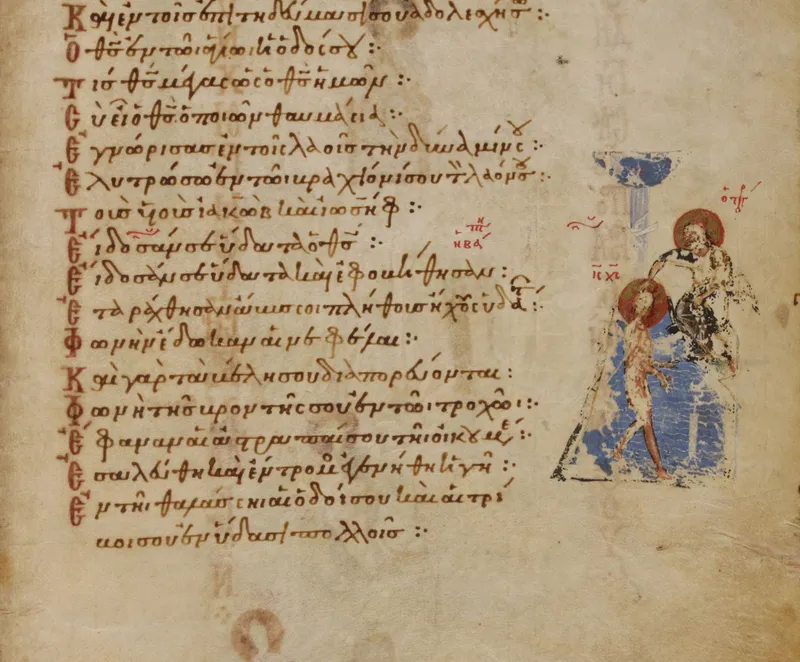 Καὶ ἐν τοῖς ἐπιτηδεύμασί σου ἀδολεσχήσω :·
Ὁ θς ἐν τῶι ἁγίωι ἡ ὁδός σου :·
Τίς θς μέγας ὡς ὁ θς ἡμῶν :·
Σὺ εἶ ὁ θς ὁ ποιῶν θαυμάσια :·
Ἐγνώρισας ἐν τοῖς λαοῖς τὴν δύναμίν σου :·
Ἐλυτρώσω ἐν τῶι βραχίονί σου τὸν λαόν σου :·
Τοὺς υἱοὺς ἰακὼβ καὶ ἰωσήφ :·
Εἴδοσάν σε ὕδατα ὁ θς :·
ἡ βά πτη
Εἴδοσάν σε ὕδατα καὶ ἐφοβήθησαν :
ις χς
Ἐταράχθησαν ἄβυσσοι πλῆθους ἤχους ὑδάτ :·
Φωνὴν ἔδωκαν αἱ νεφέλαι :·
Καὶ γὰρ τὰ βέλη σου διαπορεύονται :
Φωνὴ τῆς βροντῆς σου ἐν τῶι τροχῶι :·
Ἔφαναν αἱ ἀστραπαί σου τῆι οἰκουμέ :·
Ἐσαλεύθη καὶ ἔντρομος ἐγενήθη ἡ γῆ :·
Ἐν τῆι θαλάσσηι αἱ ὁδοί σου καὶ αἱ τρί
βοι σου ἐν ὕδασι πολλοῖς :·